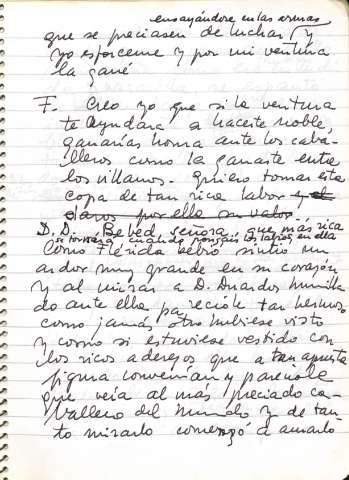 ensayándose en las armas
que se preciasen de luchar, y
yo esforceme y por mi ventura
la gané
F. Creo yo que si la ventura
te ayudara a hacerte noble,
ganarías honra ante los caba-
lleros como la ganaste entre
los villanos. Quiero tomar esta
copa de tan rica labor y el
daros por ella su valor.
D. D. Bebed, señora, que más rica
se tornará cuando pongáis los labios en ella
como Flérida bebió sintió un
ardor muy grande en su corazón
y al mirar a D. Duardos humilla
do ante ella parecióle tan hermoso
como jamás otro hubiese visto
y como si estuviese vestido con
los ricos aderezos que a tan apuesta
figura convenían y parecíale
que veía al más preciado ca-
vallero del mundo y de tan-
to mirarlo comenzó a amarlo